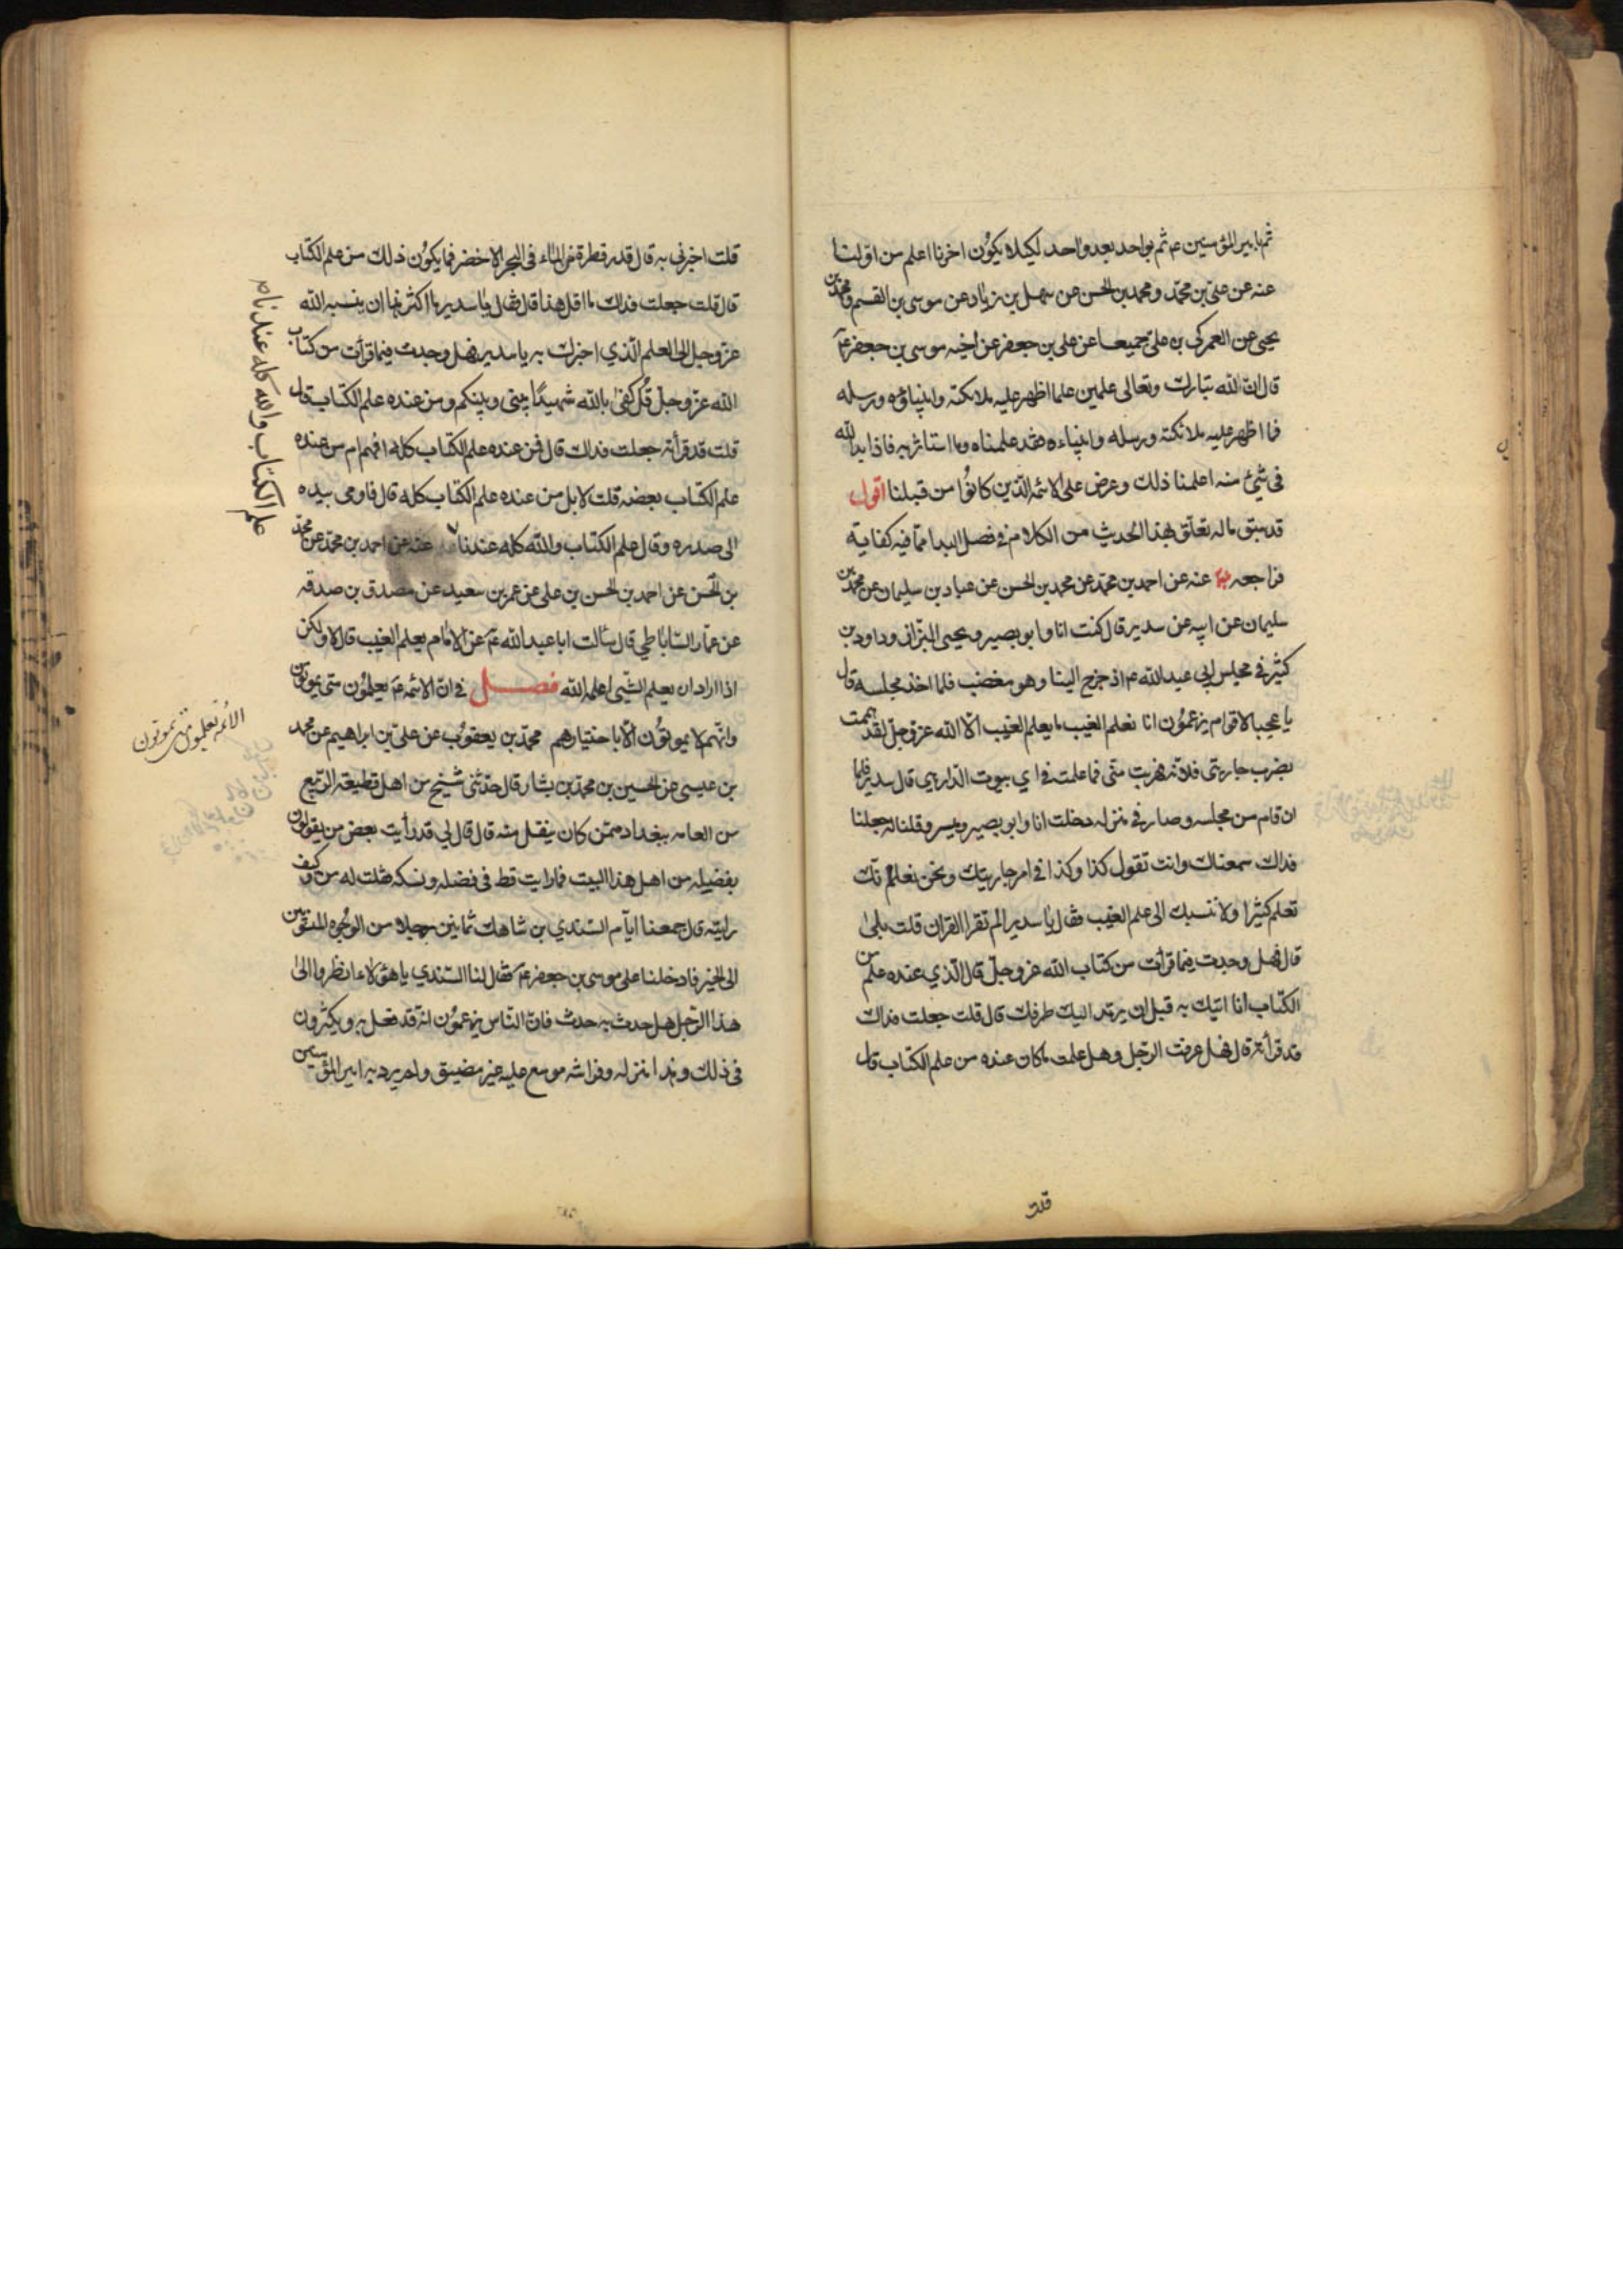 ثم بامير المؤمنين عم ثم بواحد بعد واحد لكيلا يكون اخرنا اعلم من اولنا
عنه عن علي بن محمد و محمد بن الحسن عن سهل بن زياد عن موسى بن القسم و محمد بن
يحيى عن العمركي بن علي جميعا عن علي بن جعفر عن اخيه موسى بن جعفر عم
قال ان لله تبارك وتعالى علمين علما اظهر عليه ملائكته وانبياؤه ورسله
فما اظهر عليه ملائكته ورسله وانبياءه فقد علمناه وما استاثر به فاذا بدا لله
في شيئ منه اعلمنا ذلك وعرض على الائمه الذين كانوا من قبلنا اقول
قد سبق ماله تعلق بهذا الحديث من الكلام في فصل البدا مما فيه كفاية
فراجعه عنه عن احمد بن محمد عن محمد بن الحسن عن عباد بن سليمان عن محمد بن
سليمان عن ابيه عن سدير قال كنت انا وابو بصير ويحيى البزاز وداود بن
كثير في مجلس ابي عبد الله عم اذ خرج الينا وهو مغضب فلما اخذ مجلسه قال
يا عجبا لاقوام يزعمون انا نعلم الغيب ما يعلم الغيب الا الله عز وجل لقد هممت
بضرب جاريتي فلانه فهربت مني فما علمت في اي بيوت الدار هي قال سدير فلما
ان قام من مجلسه وصار في منزله دخلت انا وابو بصير وميسر وقلنا له جعلنا
فداك سمعناك وانت تقول كذا وكذا في امر جاريتك ونحن نعلم انك
تعلم كثيرا ولا ننسبك الى علم الغيب فقال يا سدير الم تقرا القران قلت بلى
قال فهل وجدت فيما قرأت من كتاب الله عز وجل قال الذي عنده علم من
الكتاب انا اتيك به قبل ان يرتد اليك طرفك قال قلت جعلت فداك
قد قرأته قال فهل عرفت الرجل وهل علمت ما كان عنده من علم الكتاب قال
قلت
قلت اخبرني به قال قدر قطرة من الماء في البحر الاخضر فما يكون ذلك من علم الكتاب
قال قلت جعلت فداك ما اقل هذا قال فقال يا سدير ما اكثر هذا ان ينسبه الله
عز وجل الى العلم الذي اخبرك به يا سدير فهل وجدت فيما قرأت من كتاب
الله عز وجل قل كفى بالله شهيدا بيني وبينكم ومن عنده علم الكتاب قال
قلت قد قرأته جعلت فداك قال فمن عنده علم الكتاب كله افهم ام من عنده
علم الكتاب بعضه قلت لا بل من عنده علم الكتاب كله قال فاومى بيده
الى صدره وقال علم الكتاب والله كله عندنا عنه عن احمد بن محمد عن محمد
بن الحسن عن احمد بن الحسن بن علي عن عمر بن سعيد عن مصدق بن صدقه
عن عمار الساباطي قال سألت ابا عبد الله عم عن الامام يعلم الغيب قال لا ولكن
اذا اراد ان يعلم الشيئ اعلمه الله فصل في ان الائمه عم يعلمون متى يموتون
وانهم لا يموتون الا باختيارهم محمد بن يعقوب عن علي بن ابراهيم عن محمد
بن عيسى عن الحسين بن محمد بن بشار قال حدثني شيخ من اهل قطيعة الربيع
من العامه ببغداد ممن كان ينقل منه قال قال لي قد رأيت بعض من يقولون
بفضله من اهل هذا البيت فما رايت قط في فضله ونسكه فقلت له من وكيف
رايته قال جمعنا ايام السندي بن شاهك ثمانين رجلا من الوجوه المنسوبين
الى الخير فادخلنا على موسى بن جعفر عم فقال لنا السندي يا هؤلاء انظروا الى
هذا الرجل هل حدث به حدث فان الناس يزعمون انه قد فعل به ويكثرون
في ذلك وهذا منزله وفراشه موسع عليه غير مضيق ولم يرد به امير المؤمنين
علم الكتاب والله كله عندنا
الائمه تعلمون متى يموتون